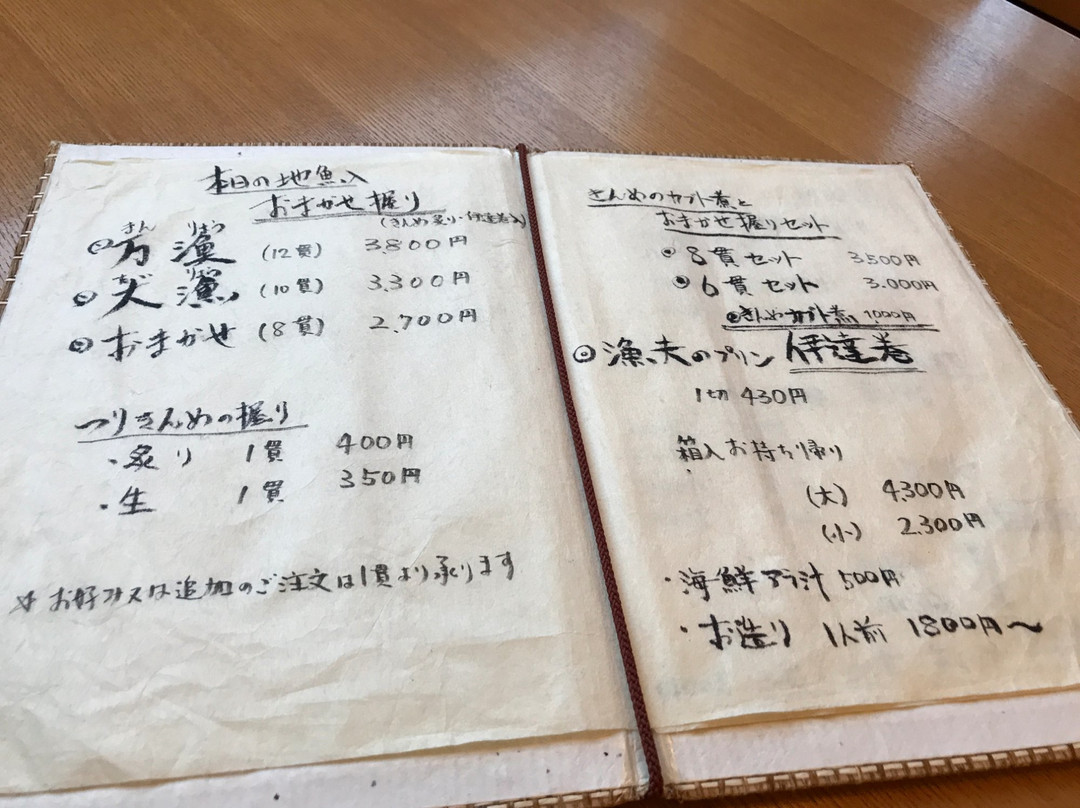 本日の地魚入
おまかせ握り
(きんめ炙り・伊達巻入)
まん りょう
◎万漁 (12貫) 3.800円
◎大漁 (10貫) 3.300円
◎おまかせ (8貫) 2.700円
つりきんめの握り
・炙り 1貫 400円
・生 1貫 350円
※お好み又は追加のご注文は1貫より承ります
きんめのカブト煮と
おまかせ握りセット
◎8貫セット 3500円
◎6貫セット 3.000円
◎きんめカブト煮 1000円
◎漁夫のプリン 伊達巻
1切 430円
箱入お持ち帰り
(大) 4.300円
(小) 2.300円
・海鮮アラ汁 500円
・お造り 1人前 1800円〜